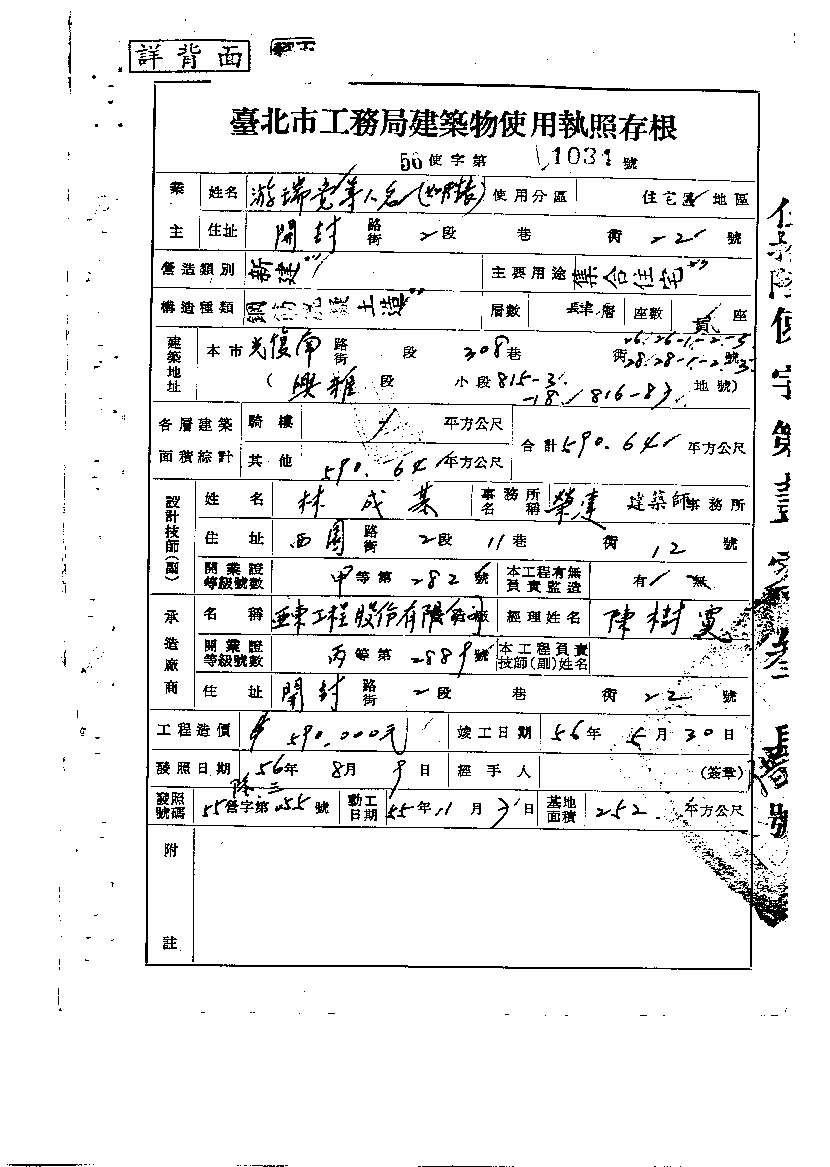 詳背面
臺北市工務局建築物使用執照存根
56使字第 1031 號
業主 姓名 游瑞 等人名 使用分區 住宅區 地區
住址 開封 路街 2段 巷 衖 22 號
營造類別 新建 主要用途 集合住宅
構造種類 鋼筋混凝土造 層數 層 座數 貳 座
建築地址 本市 光復南 路街 段 308巷 衖 26.26-1.-2.-3 28.28-1.-2.-3 號
(興雅 段 小段 815-3. -18 / 816-8 地號)
各層建築面積綜計 騎樓 / 平方公尺 合計 590.64 平方公尺
其他 590.64 平方公尺
設計技師(副) 姓名 林成 事務所名稱 榮建 建築師事務所
住址 西園 路街 2段 11巷 衖 12 號
開業證等級號數 甲等第 282 號 本工程有無負責監造 有/無
承造廠商 名稱 亞東工程股份有限公司 經理姓名 陳樹
開業證等級號數 丙等第 2889 號 本工程負責技師(副)姓名
住址 開封 路街 2段 巷 衖 22 號
工程造價 590.000元 竣工日期 56年 5月 30日
發照日期 56年 8月 9日 經手人 (簽章)
發照號碼 55營字第 055 號 動工日期 55年 11月 3日 基地面積 252. 平方公尺
附註
使字第壹 號